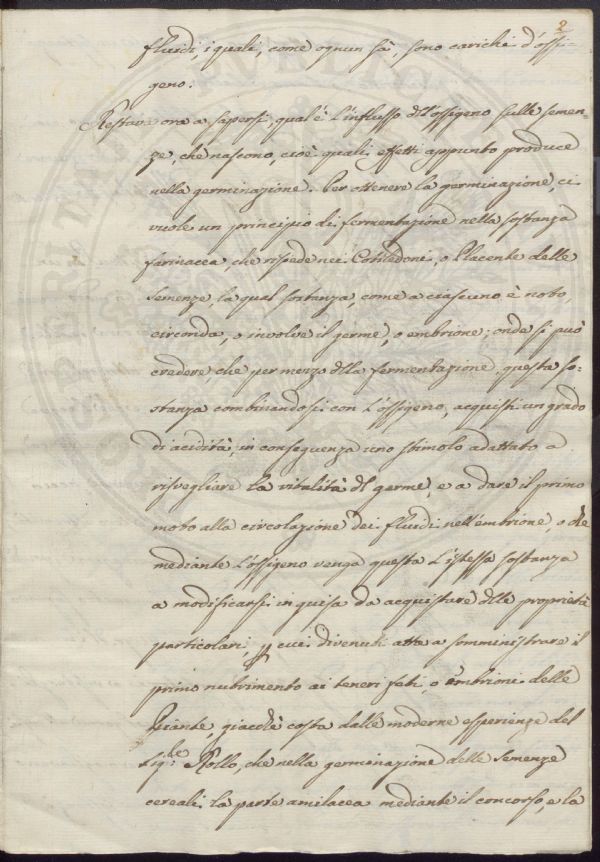 2
fluidi, i quali, come ognun sà, sono carichi d'ossi-
geno.
Restava ora a sapersi, qual'è l'influsso dell'ossigeno sulle semen-
ze, che nascono, cioè quali effetti appunto produce
nella germinazione. Per ottenere la germinazione, ci
vuole un principio di fermentazione nella sostanza
farinacea, che risiede nei Cotiledoni, o Placente delle
Semenze, la qual sostanza, come a ciascuno è noto,
circonda, o involve il germe, o embrione; onde si può
credere, che per mezzo della fermentazione questa so-
stanza combinandosi con l'ossigeno, acquisti un grado
di acidità, in conseguenza uno stimolo adattato a
risvegliare la vitalità del germe, e a dare il primo
moto alla circolazione dei fluidi nell'embrione, o che
mediante l'ossigeno venga questa l'istessa sostanza
a modificarsi in guisa da acquistare delle proprietà
particolari, cui divenuti atte a somministrare il
primo nutrimento ai teneri feti, o embrioni delle
Piante, giacchè costa dalle moderne esperienze del
Sig.re Rollo, che nella germinazione delle Semenze
cereali la parte amilacea mediante il concorso, e la